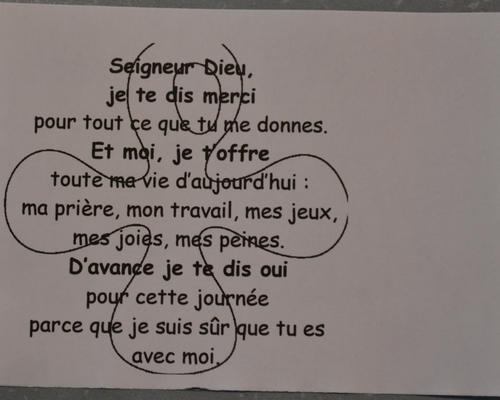 Seigneur Dieu,
je te dis merci
pour tout ce que tu me donnes.
Et moi, je t'offre
toute ma vie d'aujourd'hui :
ma prière, mon travail, mes jeux,
mes joies, mes peines.
D'avance je te dis oui
pour cette journée
parce que je suis sûr que tu es
avec moi.